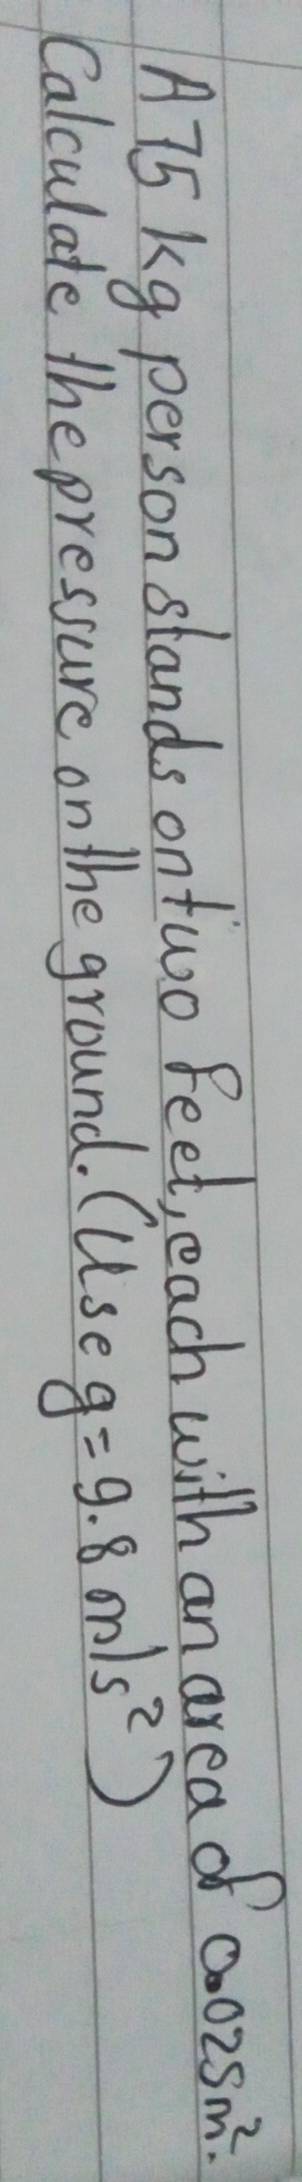 A 75 kg person stands on two feet, each with an area of 0.025m².
Calculate the pressure on the ground. (Use g = 9.8 m/s²)